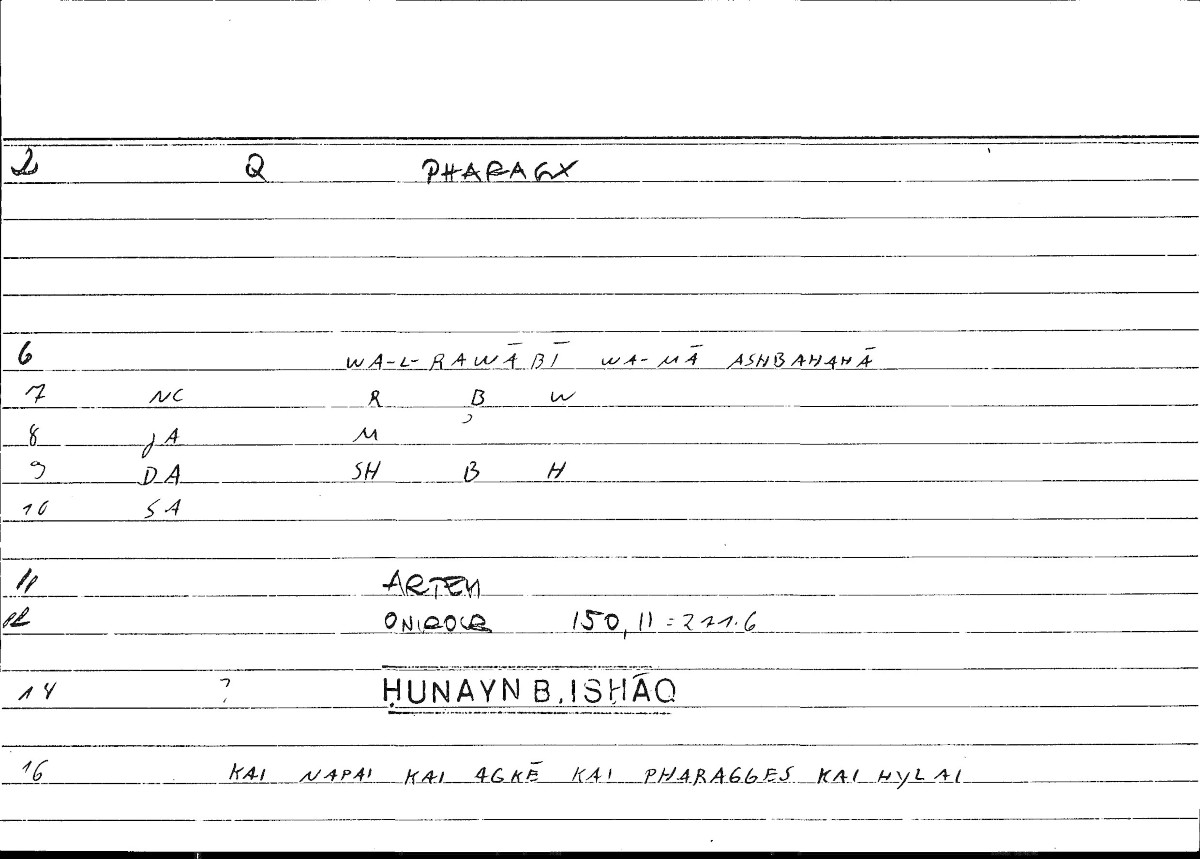 2 Q PHARAGX
6 WA-L-RAWĀBĪ WA-MĀ ASHBAHAHĀ
7 NC R B W
8 JA M ʾ
9 DA SH B H
10 SA
11 ARTEM
12 ONIROCR 150,11 = 271.6
14 ? ḤUNAYN B. ISḤĀQ
16 KAI NAPAI KAI AGKĒ KAI PHARAGGES KAI HYLAI